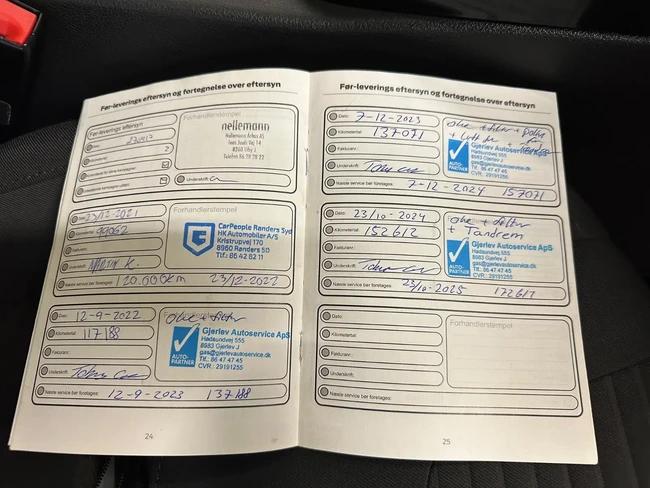 Før-leverings eftersyn og fortegnelse over eftersyn
Før-leverings eftersyn
Forhandlerstempel
nellemann
Nellemann Århus AS
Jens Juuls Vej 14
8260 Viby J
Telefon 86 28 28 22
Underskrift:
Dato: 23/12-2021
Kilometertal: 99062
Fakturanr.:
Underskrift: MARTIN K.
Forhandlerstempel
CarPeople Randers Syd
HK Automobiler A/S
Kristrupvej 170
8960 Randers SØ
Tlf.: 86 42 82 11
Næste service bør foretages: 120.000km 23/12-2022
Dato: 12-9-2022
Kilometertal: 117188
Fakturanr.:
Underskrift:
olie + filter
AUTO-PARTNER
Gjerlev Autoservice ApS
Hadsundvej 555
8983 Gjerlev J
gas@gjerlevautoservice.dk
Tlf.: 86 47 47 45
CVR.: 29191255
Næste service bør foretages: 12-9-2023 137188
24
Før-leverings eftersyn og fortegnelse over eftersyn
Dato: 7-12-2023
Kilometertal: 137071
Fakturanr.:
Underskrift:
olie + filter +
+ Luft
AUTO-PARTNER
Gjerlev Autoservice
Hadsundvej 555
8983 Gjerlev J
gas@gjerlevautoservice.dk
Tlf.: 86 47 47 45
CVR.: 29191255
Næste service bør foretages: 7-12-2024 157071
Dato: 23/10-2024
Kilometertal: 152612
Fakturanr.:
Underskrift:
olie + filter
+ Tandrem
AUTO-PARTNER
Gjerlev Autoservice ApS
Hadsundvej 555
8983 Gjerlev J
gas@gjerlevautoservice.dk
Tlf.: 86 47 47 45
CVR.: 29191255
Næste service bør foretages: 23/10-2025 172612
Dato:
Kilometertal:
Fakturanr.:
Underskrift:
Forhandlerstempel
Næste service bør foretages:
25